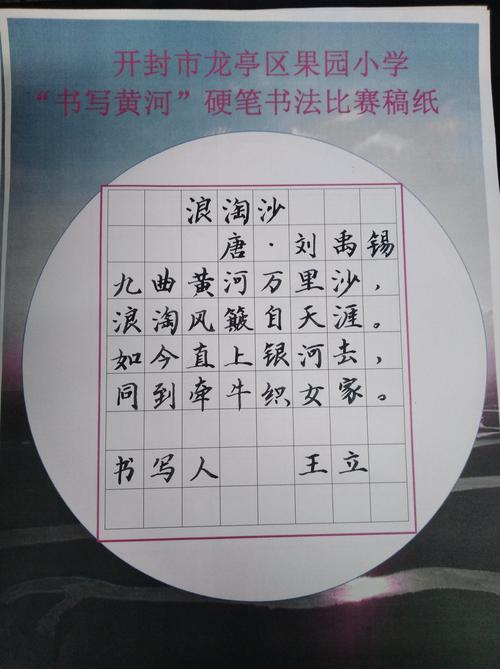 开封市龙亭区果园小学
“书写黄河”硬笔书法比赛稿纸
浪淘沙
唐·刘禹锡
九曲黄河万里沙，
浪淘风簸自天涯。
如今直上银河去，
同到牵牛织女家。
书写人 王立